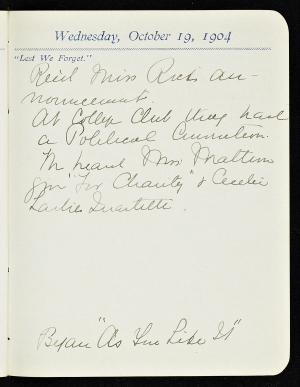 Wednesday, October 19, 1904
"Lest We Forget."
Rec'd Miss Rick's an-
nouncement
At College Club they had
a Political Cumulion.
M heard Mrs. Mattern
give "For Charity" & Cecelia
Ladies Quartette.
Began "As You Like It"